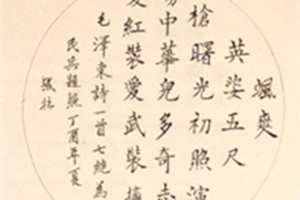 颯爽
英姿五尺
槍曙光初照演
場中華兒多奇志
愛紅裝愛武裝摘
毛澤東詩一首七絕為
民兵題照丁酉年夏